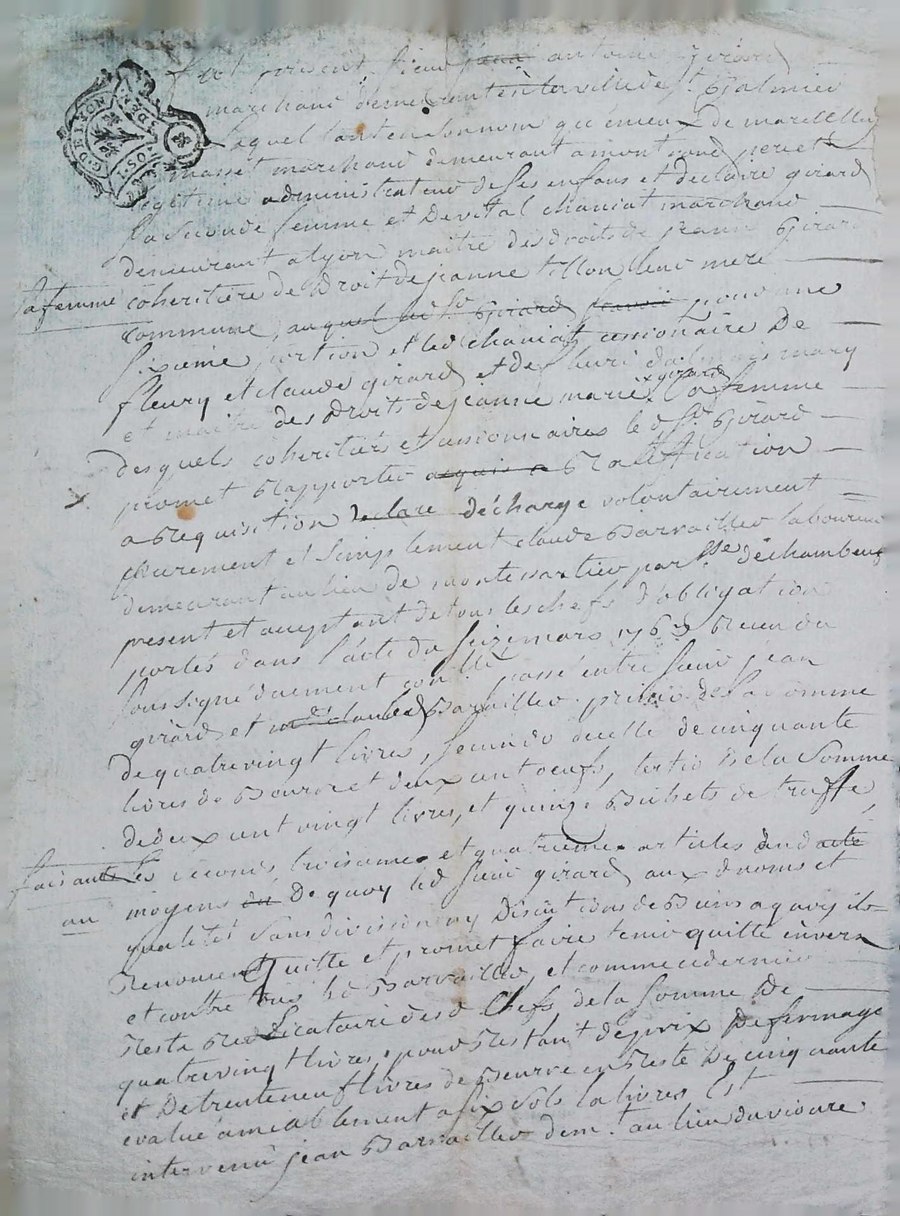 fut présent sieur antoine girard
marchand demeurant en la ville de st. Galmier
Lequel tant en son nom que de marcellin
masset marchand demeurant a montrond pere et
legitime administrateur de ses enfans et de claire girard
sa seconde femme et de vital chaniat marchand
demeurant a lyon maitre des droits de jeanne Girard
sa femme coheritiere de droit de jeanne tillon leur mere
commune, auquel Girard pour une
sixieme portion et led chaniat cessionaire De
fleury et claude girard et de fleuri mary
et maitre des droits de jeanne marie girard sa femme
desquels coheritiers et cessionnaires le d. sr. Girard
promet Rapporter acquis a Ratiffication
a Requisition declare décharge volontairement
purement et simplement claude Barrailler laboureur
demeurant au lieu de par.sse de chambeuf
present et acceptant de tous les chefs d'obligation
portés dans l'acte du seize mars 1763 Recu du
soussigné duement con.llé passé entre sieur jean
girard et claude Barailler. primo de la somme
de quatrevingt livres, secundo de celle de cinquante
livres de Beurre et deux cent oeufs, tertio de la somme
de deux cent vingt livres, et quinze Bichets de truffe,
faisants les second troisieme et quatrieme articles dud acte
au moyens De quoy led sieur girard aux d noms et
qualités sans division ny discution de Biens a quoy ils
Renoncent Quitte et promet faire tenir quitte envers
et contre tous led Barrailler, et comme ce dernier
Reste des d chefs de la somme De
quatrevingt livres pour Restant de prix De fermage
et De trente neuf livres de Beurre en Reste De cinquante
evalué amiablement a six sols la livres, Est
intervenu jean Barrailler dem.t au lieu du
G. DE LYON